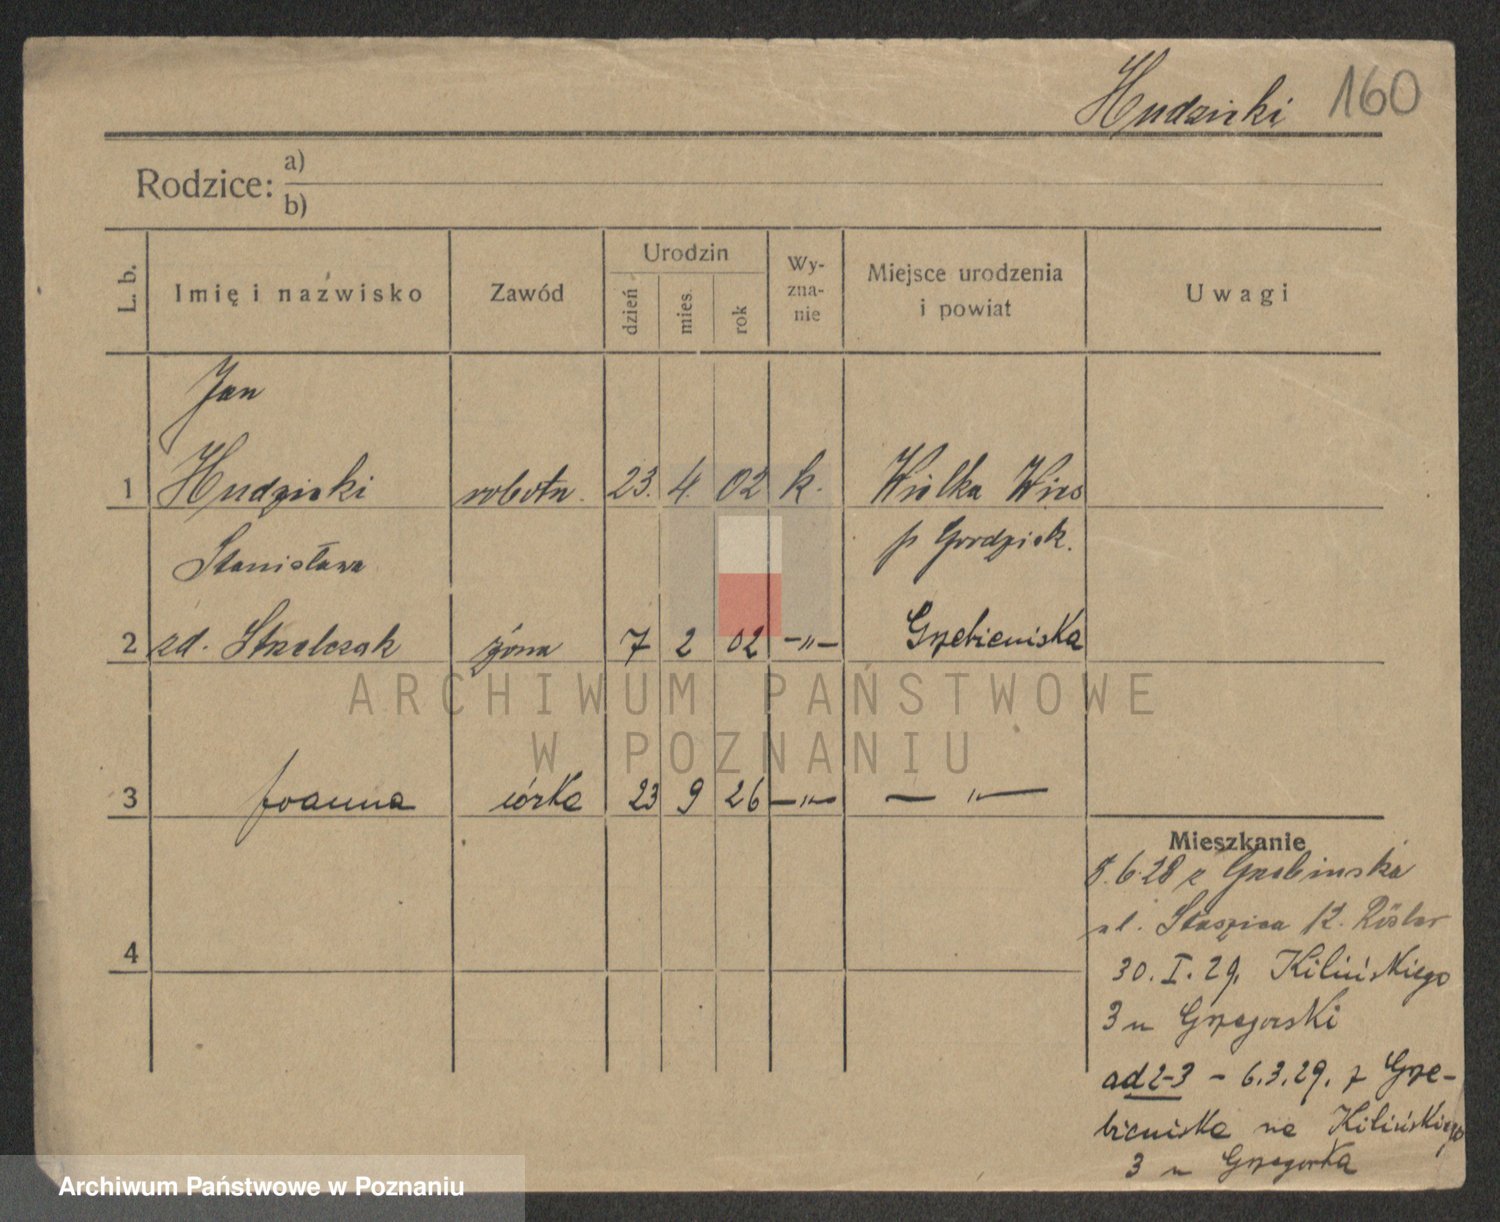 Hudzicki 160
Rodzice: a)
b)
L. b. Imię i nazwisko Zawód Urodzin dzień mies. rok Wy-zna-nie Miejsce urodzenia i powiat Uwagi
Jan
1 Hudzicki robotn. 23. 4. 02 k. Wielka Wieś
Stanisława p Grodzisk.
2 zd. Strzelczak żona 7 2 02 -„- Grzebieniska
ARCHIWUM PAŃSTWOWE
W POZNANIU
3 Joanna córka 23 9 26 -„- - „-
Mieszkanie
8.6.28 z Grzebiniska
4 ul. Staszica 12. Rösler
30. I. 29. Kilińskiego
3 u Grzegorski
ad 2-3 - 6.3.29. z Grze-
bieniska na Kilińskiego
3 u Grzegorka
Archiwum Państwowe w Poznaniu